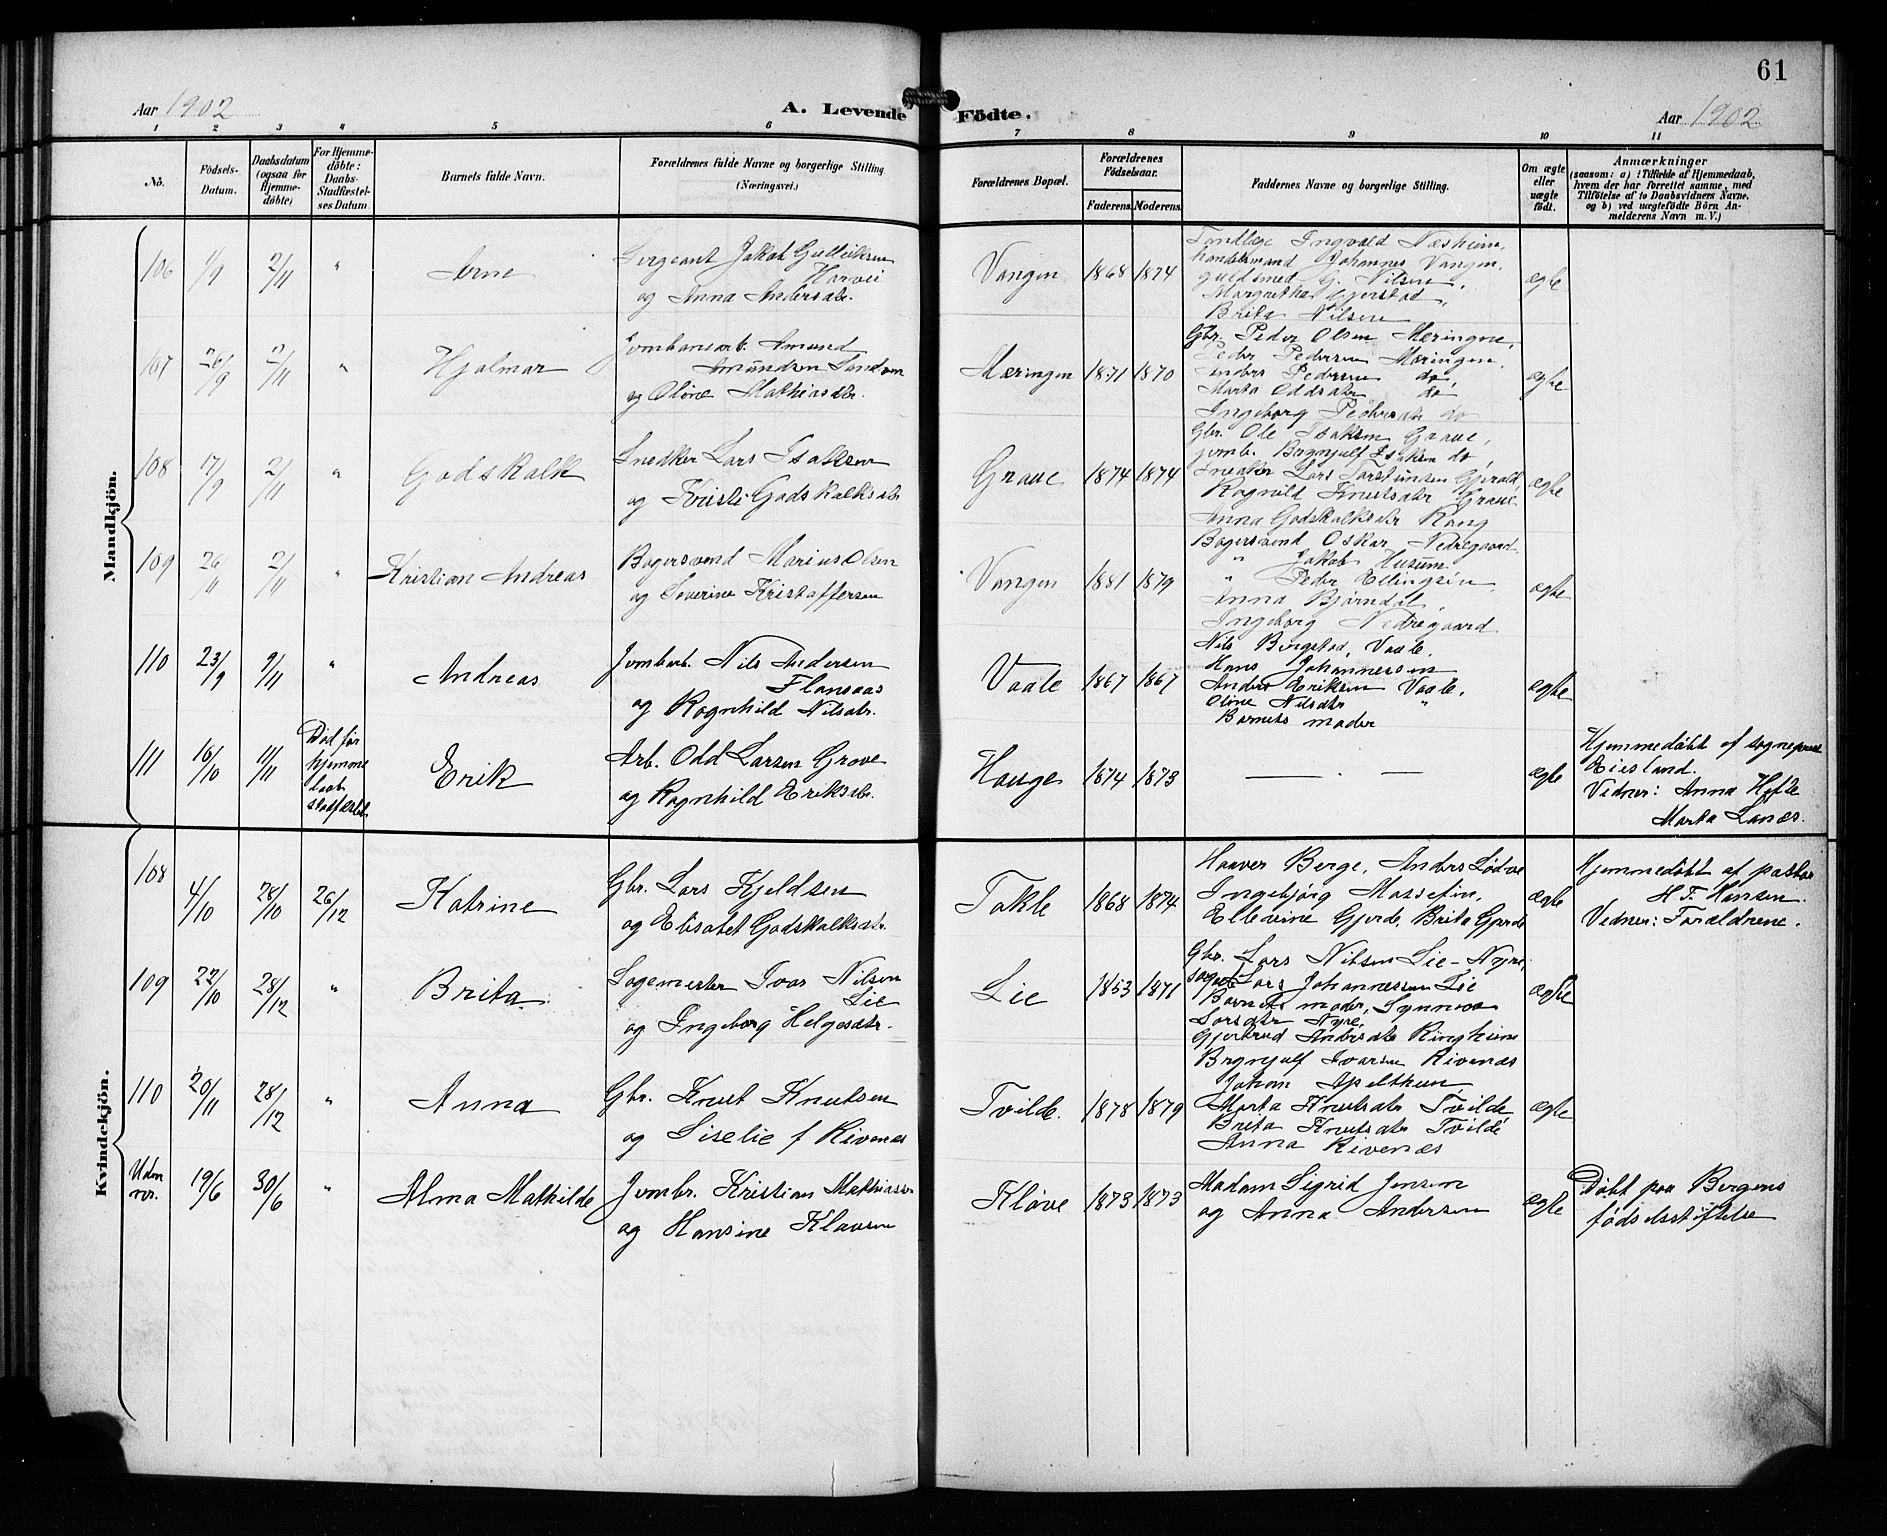 61
Aar 1902
A. Levende Födte.
Aar 1902
1 2 3 4 5 6 7 8 9 10 11
No.
Födsels-
Datum.
Daabsdatum
(ogsaa for
Hjemme-
döbte)
For Hjemme-
döbte:
Daabs-
Stadfæstel-
ses Datum
Barnets fulde Navn.
Forældrenes fulde Navne og borgerlige Stilling
(Næringsvei.)
Forældrenes Bopæl.
Forældrenes
Födselsaar.
Faderens. Moderens.
Faddernes Navne og borgerlige Stilling.
Om ægte
eller
uægte
födt.
Anmærkninger
(saasom: a) i Tilfælde af Hjemmedaab,
hvem der har forrettet samme, med
Tilföielse af to Daabsvidners Navne.
og b) ved uægtefödte Börn An-
melderens Navn m. V.)
Mandkjön.
106 1/9 2/11 " Arne
Sergeant Jakob Gulleiksen
Harvei
og Anna Andersdtr.
Vangen 1868 1874
Tandlæge Ingvald Næsheim,
handelsmand Johannes Vangen,
guldsmed G. Nilsen,
Margretha Gjerstad,
Brita Nilsen
ægte
107 26/9 2/11 " Hjalmar
Jernbanearb. Amund
Amundsen Sandem
og Oline Mathiasdtr.
Mæringen 1871 1870
Gbr. Peder Olsen Mæringen,
Peder Pedersen Mæringen,
Anders Pedersen do,
Marta Oddsdtr do
Ingeborg Pedersdtr do
ægte
108 17/9 2/11 " Godskalk
Snedker Lars Isaksen
og Kristi Godskalksdtr
Graue 1874 1874
Gbr. Ole Isaksen Graue,
jernb. Brynjulf Isaksen do,
Snedker Lars Torstensen Gjerald
Ragnild Knutsdtr Graue
Anna Godskalksdtr Rang
ægte
109 26/11 2/11 " Kristian Andreas
Bagersvend Marius Olsen
og Severine Kristaffersen
Vangen 1881 1879
Bagersvend Oskar Nedregaard
" Jakob Husum
" Peder Ellingsen
Anna Bjørndal,
Ingeborg Nedregaard
ægte
110 23/9 9/11 " Andreas
Jernbarb. Nils Andersen
Flansaas
og Ragnhild Nilsdtr.
Vaale 1867 1867
Nils Bergstad, Vaale,
Hans Johannessen
Anders Eriksen Vaale,
Oline Nilsdtr "
Barnets moder
ægte
111 16/10 11/11
Død før
hjemme
daab
stadfæstet
Erik
Arb. Odd Larsen Grove
og Ragnhild Eriksdtr.
Hauge 1874 1873
— . —
ægte
Hjemmedøbt af sogneprest
Eiesland.
Vidner: Anna Hefte
Marta Lanæs.
Kvindekjön.
108 4/10 28/10 26/12 Katrine
Gbr. Lars Kjeldsen
og Elisabet Godskalksdtr.
Takle 1868 1874
Haaver Berge, Anders Lødve
Ingebjørg Massefin,
Ellevine Gjerde, Brita Gjerde
ægte
Hjemmedøbt af pastor
H. F. Hansen.
Vidner: Forældrene.
109 22/10 28/12 " Brita
Sagemester Ivar Nilsen
Lie
og Ingeborg Helgesdtr.
Lie 1853 1871
Gbr. Lars Nilsen Lie-Nyre,
Lars Johannessen Lie
Barnets moder, Synneva
Larsdtr Nyre,
Gjertrud Andersdtr Ringheim
ægte
110 20/11 28/12 " Anna
Gbr. Knut Knutsen
og Siselie f Rivenæs
Tvilde. 1878 1879
Brynjulf Ivarsen Rivenæs
Johan Apelthun,
Marta Knutsdtr Tvilde
Brita Knutsdtr Tvilde
Anna Rivenæs
ægte
Uden
nr. 19/6 30/6 " Alma Mathilde
Jernbr. Kristian Mathiassen
og Hansine Klausen
Kløve 1873 1873
Madam Sigrid Jensen
og Anna Andersen
ægte
Døbt paa Bergens
fødselsstiftelse